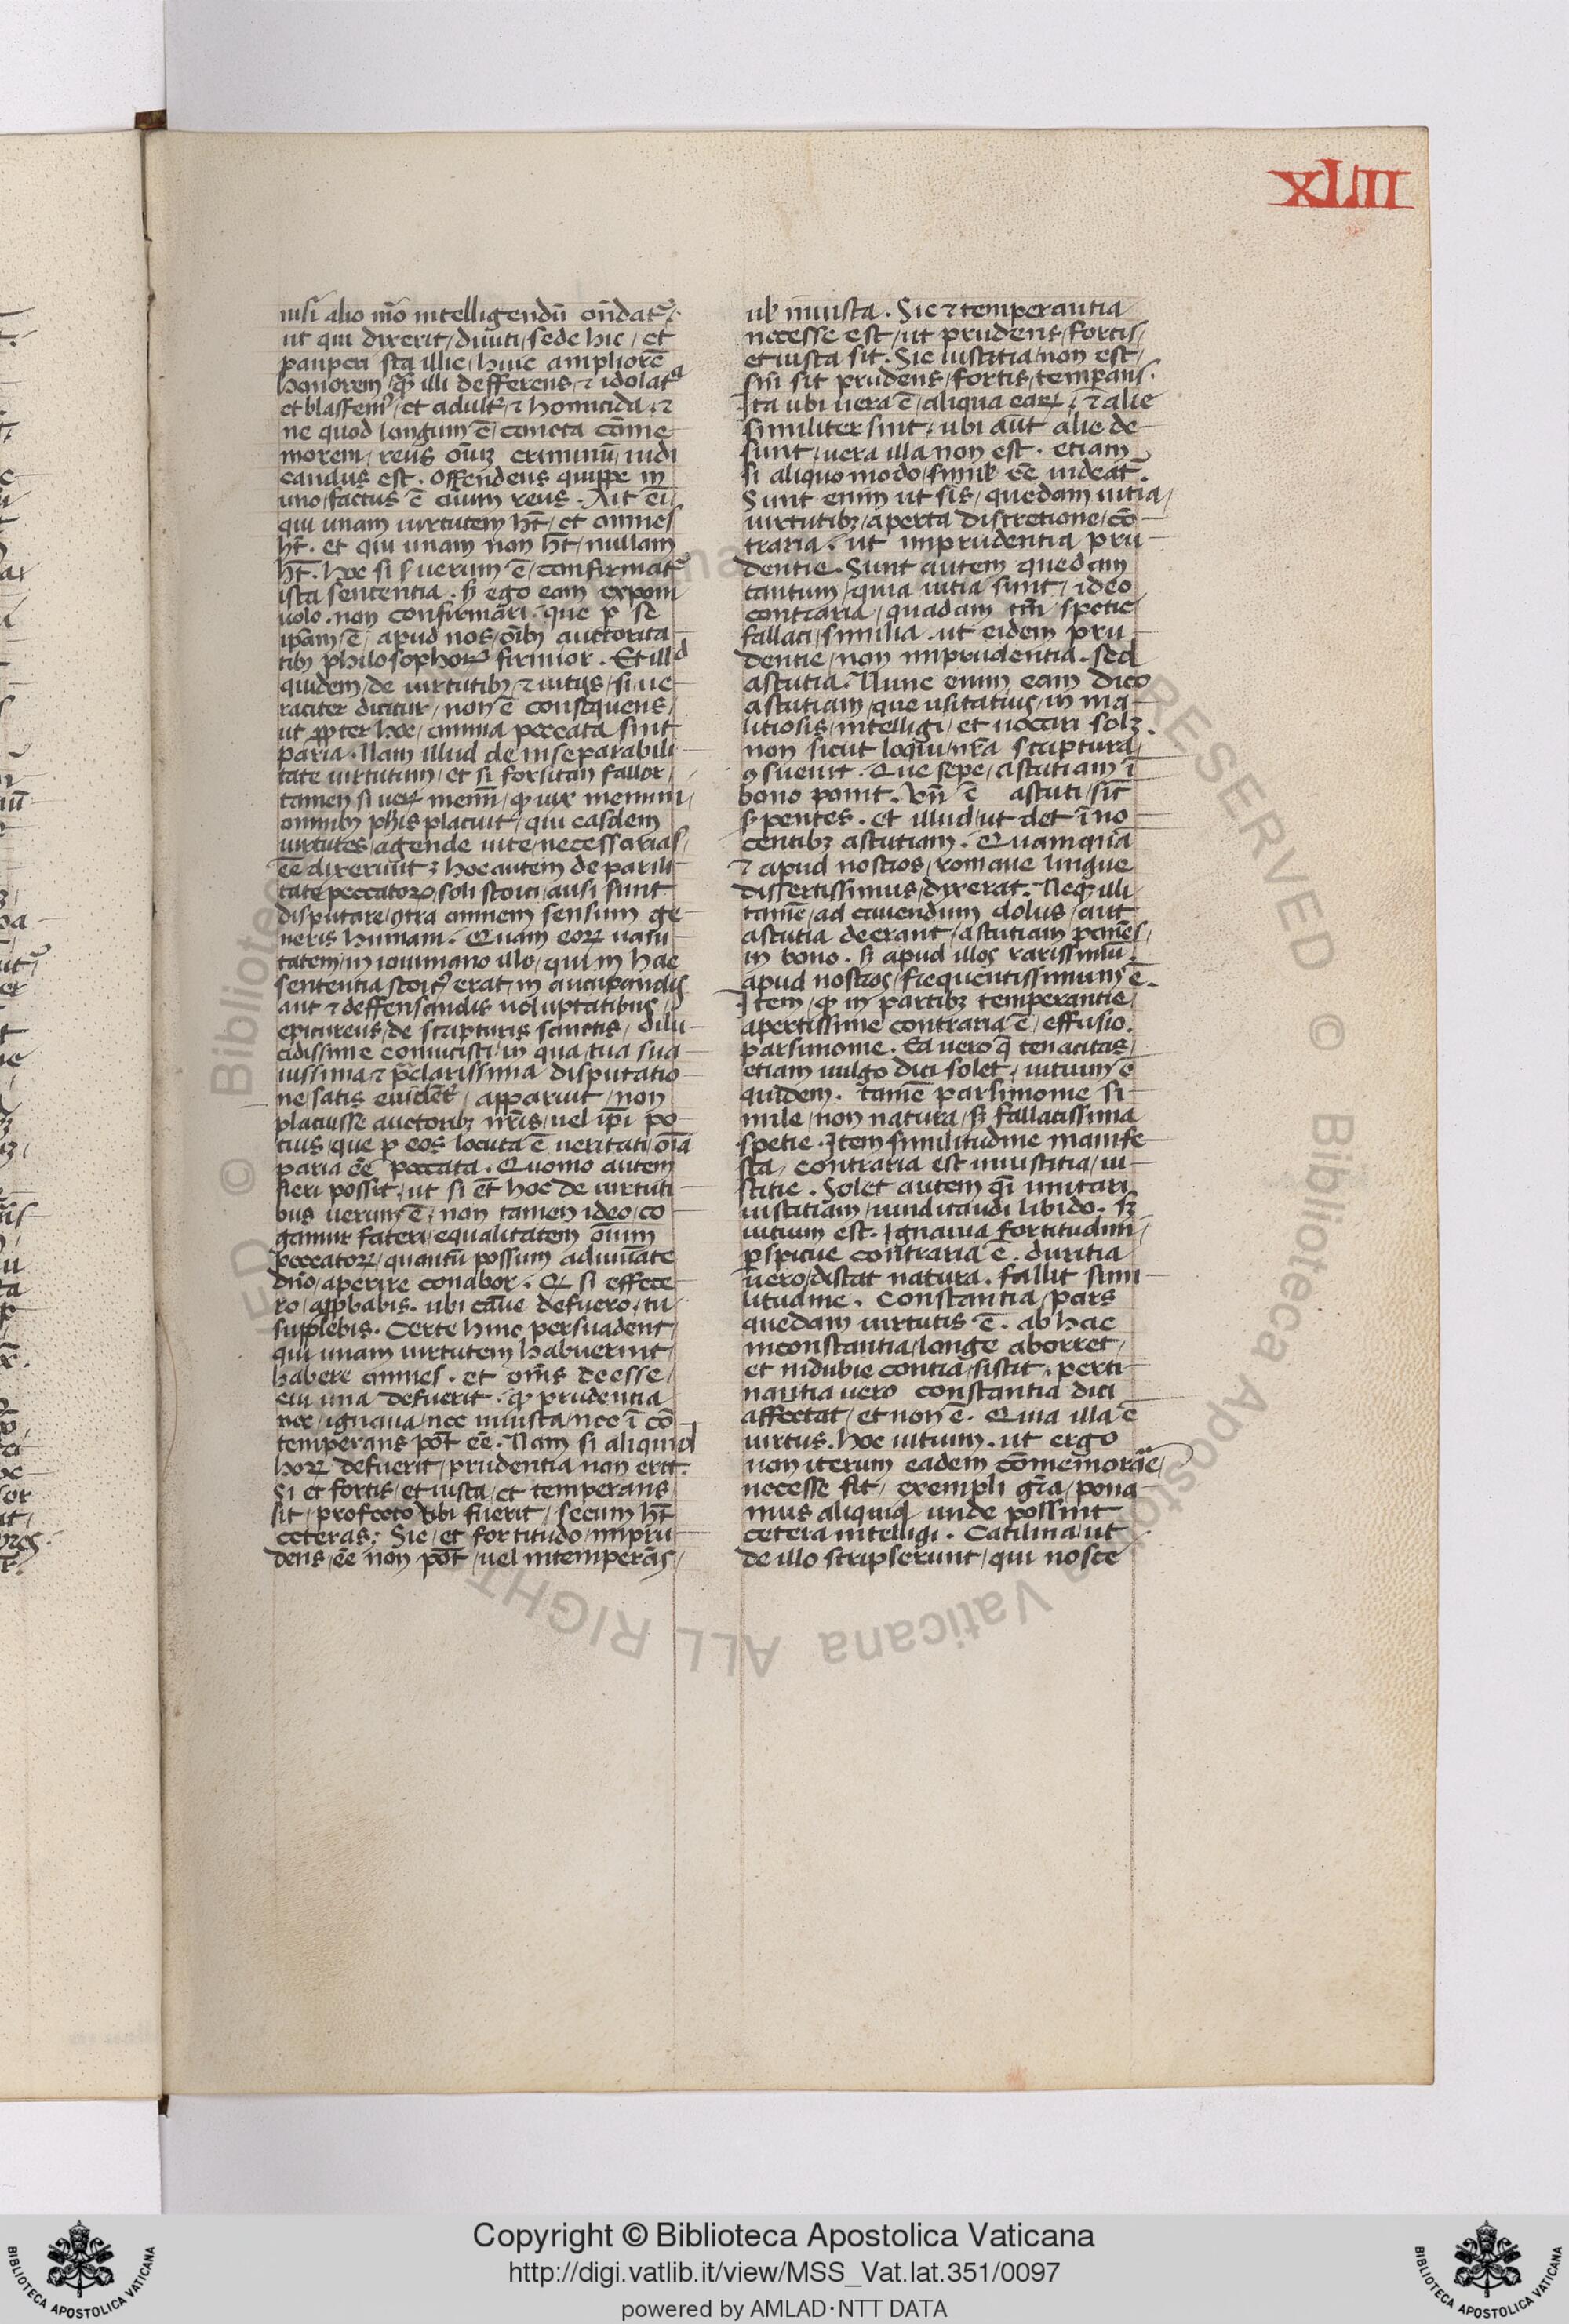 XLIII
nisi alio mō intelligendū ōndatᷣ.
ut qui dixerit / diuiti / sede hic / et
pauperi sta illic / huic ampliorē
honorem / qͣ illi defferens / ⁊ idolatᵃ
et blassem⁹ / et adult̄ / ⁊ homicida / ⁊
ne quod longum ē / cuncta cōme
morem / reus oīuꝫ criminū / iudi
candus est . Offendens quippe in
uno / factus ē oīum reus . Ait eī
qui unam uirtutem ht̄ / et omnes
ht̄ . et qui unam non ht̄ / nullam
ht̄ . hoc si uerum ē / confirmatᷣ
ista sententia . sꝫ ego eam exponi
uolo . non confirmari . que p se
ipsam ē / apud nos / oībꝫ auctorita
tibꝫ philosophoꝝ firmior . Et illd
quidem / de uirtutibꝫ / ⁊ uitijs / si ue
raciter dicitur / non ē consequens /
ut ꝓpter hec / omnia peccata sint
paria . Nam illud de inseparabili
tate uirtutum / et si forsitan fallor /
tamen si ueꝝ memī / qͣ uix memini /
omnibꝫ phis placuit / qui easdem
uirtutes / agende uite / necessarias /
ēe dixerunt . hoc autem de parili
tate peccatoꝝ / soli stoici / ausi sunt
disputare / ꝯtra omnem sensum ge
neris humani . Quam eoꝝ uani
tatem / in iouiniano illo / qui in hac
sententia stoic⁹ erat / in aucupandis
aut ⁊ deffensandis uoluptatibus /
epicureus / de scripturis sanctis / dilu
cidissime conuicisti / in qua tua sua
uissima ⁊ p̄clarissima disputatio
ne / satis euidēt̄ / apparuit / non
placuisse auctoribꝫ nr̄is / uel ip̄i po
tius / que p eos locuta ē ueritati / oīa
paria ēe peccata . Quomo autem
fieri possit / ut si et̄ hoc de uirtuti
bus uerum ē / non tamen ideo / co
gamur fateri / equalitatem oīum
peccatoꝝ / quantū possum adiuuāte
dn̄o / aperire conabor . Qͩ si effece
ro / apꝓbabis . ubi cāue defuero / tu
supplebis . Certe hinc persuadent
qui unam uirtutem habuerint /
habere omnes . et om̄s deesse /
cui una defuerit . qͣ prudentia
nec / ignaua / nec iniusta / nec ī cō
temperans pōt ēe . Nam si aliquid
hoꝝ defuerit / prudentia non erit .
Si et fortis / et iusta / et temperans
sit / profecto ubi fuerit / secum ht̄
ceteras . Sic / et fortitudo / impru
dens / ēe non pōt / uel intemperās /
ul̄ iniusta . Sic ⁊ temperantia
necesse est / ut prudens / fortis /
et iusta sit . Sic iustitia / non est /
sin̄ sit prudens / fortis / temperans .
Ita ubi uera ē / aliqua eaꝝ / ⁊ alie
similiter sint / ubi aūt alie de
sunt / uera illa non est . etiam
si aliquo modo / simil̄ ēe uideatᷣ .
Sunt enim ut sis / quedam uitia /
uirtutibꝫ / aperta discretione / cō
traria . ut imprudentia pru
dentie . Sunt autem quedam
tantum / quia uitia sunt / ideo
contraria / quadam tn̄ spetie
fallaci / similia . ut eidem pru
dentie / non imprudentia . sed
astutia . Nunc enim eam dico
astutiam / que usitatius / in ma
litiosis / intelligi / et uocari solꝫ .
non sicut loqui / nr̄a scriptura /
ꝯsueuit . Que sepe / astutiam ī
bono ponit . Vn̄ ē astuti / sic̄
sꝑentes . et illud / ut det īno
centibꝫ astutiam . Quamquā
⁊ apud nostros / romane lingue
dissertissimus / dixerat . Neqꝫ illi
tamē / ad cauendum dolus / aut
astutia deerant / astutiam ponēs /
in bono . sꝫ apud illos rarissimū .
apud nostros / frequentissimum ē .
Item / qͣ in partibꝫ temperantie /
apertissime contraria ē / effusio .
parsimonie . Ea uero q̄ tenacitas /
etiam uulgo dici solet / uitium ē
quidem . tamē parsimonie si
mile / non natura / sꝫ fallacissima
spetie . Item similitudine manife
sta / contraria est iniustitia / iu
stitie . Solet autem qͣi imitari
iustitiam / uindicandi libido . sꝫ
uitium est . Ignauia fortitudini /
ꝑspicue contraria ē . duritia
uero / distat natura . fallit simi
litudine . Constantia / pars
quedam uirtutis ē . ab hac
inconstantia / longe aborret /
et indubie contrā / sistit . perti
nantia uero constantia dici
affectat / et non ē . Quia illa ē
uirtus . hoc uitium . ut ergo
non iterum eadem cōmemorāe /
necesse sit / exempli gr̄a / pona
mus aliquid / unde possint
cetera intelligi . Catilina / ut
de illo scripserunt / qui nosce
Copyright © Biblioteca Apostolica Vaticana
http://digi.vatlib.it/view/MSS_Vat.lat.351/0097
powered by AMLAD·NTT DATA
BIBLIOTECA APOSTOLICA VATICANA
BIBLIOTECA APOSTOLICA VATICANA